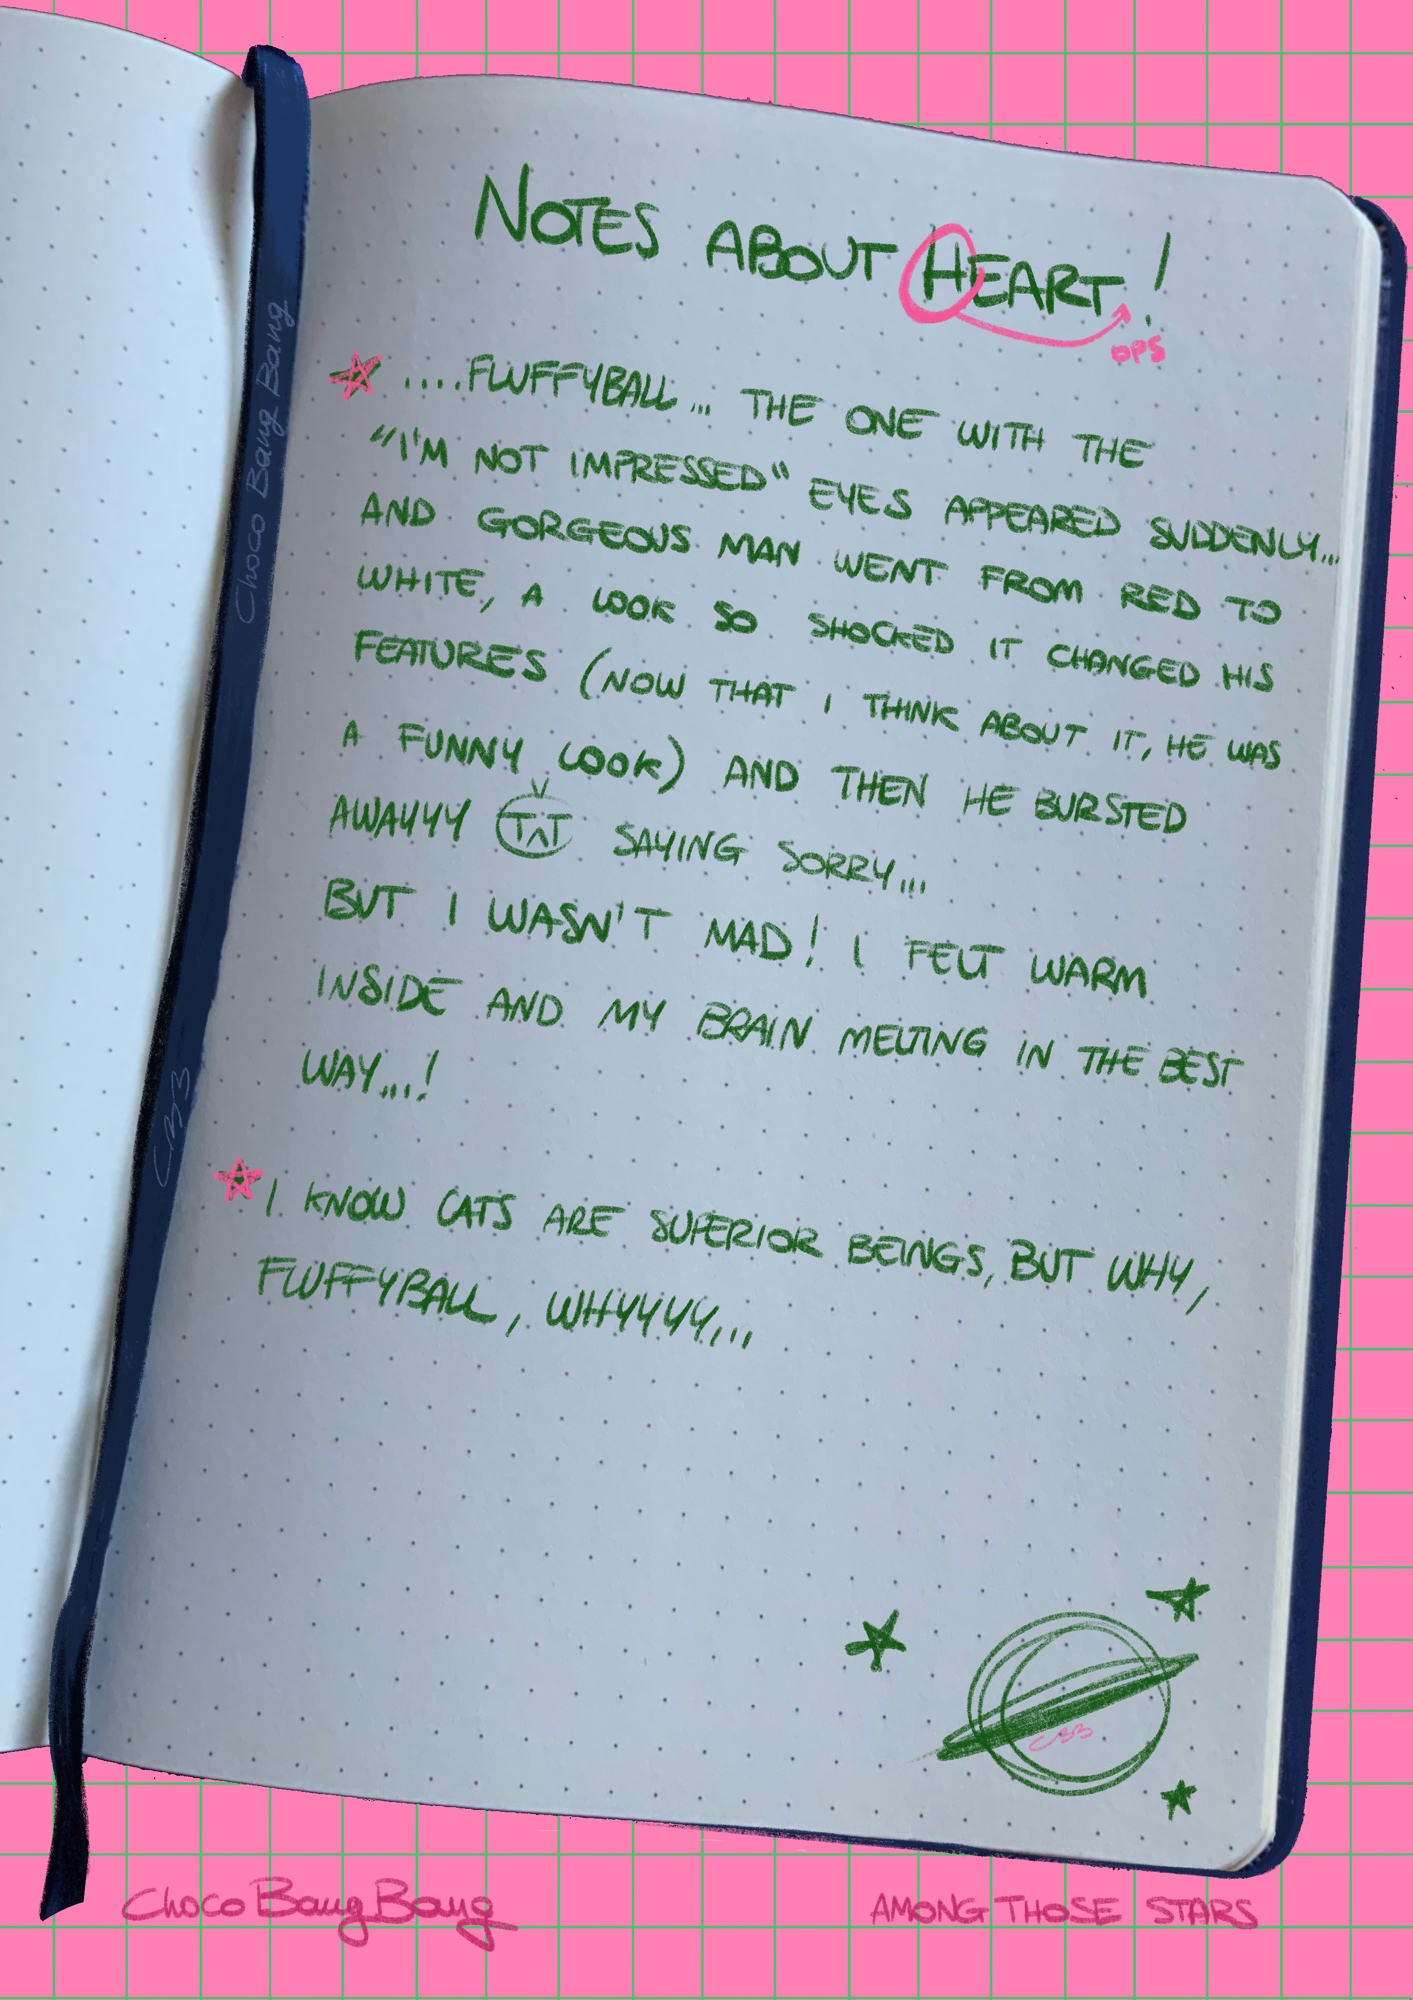 NOTES ABOUT HEART!
OPS
....FLUFFYBALL... THE ONE WITH THE
"I'M NOT IMPRESSED" EYES APPEARED SUDDENLY...
AND GORGEOUS MAN WENT FROM RED TO
WHITE, A LOOK SO SHOCKED IT CHANGED HIS
FEATURES (NOW THAT I THINK ABOUT IT, HE WAS
A FUNNY LOOK) AND THEN HE BURSTED
AWAYYY TnT SAYING SORRY...
BUT I WASN'T MAD! I FELT WARM
INSIDE AND MY BRAIN MELTING IN THE BEST
WAY...!
I KNOW CATS ARE SUPERIOR BEINGS, BUT WHY,
FLUFFYBALL, WHYYYY...
Choco Bang Bang
CBB
CBB
Choco Bang Bang
AMONG THOSE STARS